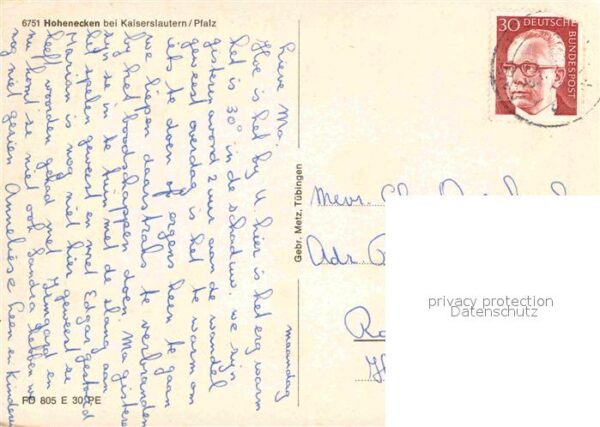 6751 Hohenecken bei Kaiserslautern/Pfalz
30 DEUTSCHE BUNDESPOST
maandag
Lieve Ma.
Hoe is het by U. hier is het erg warm
het is 30° in de schaduw. we zijn
gisteren avond 2 uur aan de wandel
geweest overdag is het te warm om
iets te doen of ergens heen te gaan
we liepen daarstraks te verbranden
by het boodschappen doen. Ma gisteren
zijn se in de tuin met de slang aan
het spelen geweest en met Edgar gestoeid
Marian is nog niet hier geweest se
heeft worden gehad met Irmgard en
nu komt se niet ook Sandra hebben we
nog niet gezien Annelièse Leen en Kinderen
Gebr. Metz, Tübingen
Mevr.
Adr.
privacy protection
Datenschutz
FD 805 E 30 PE